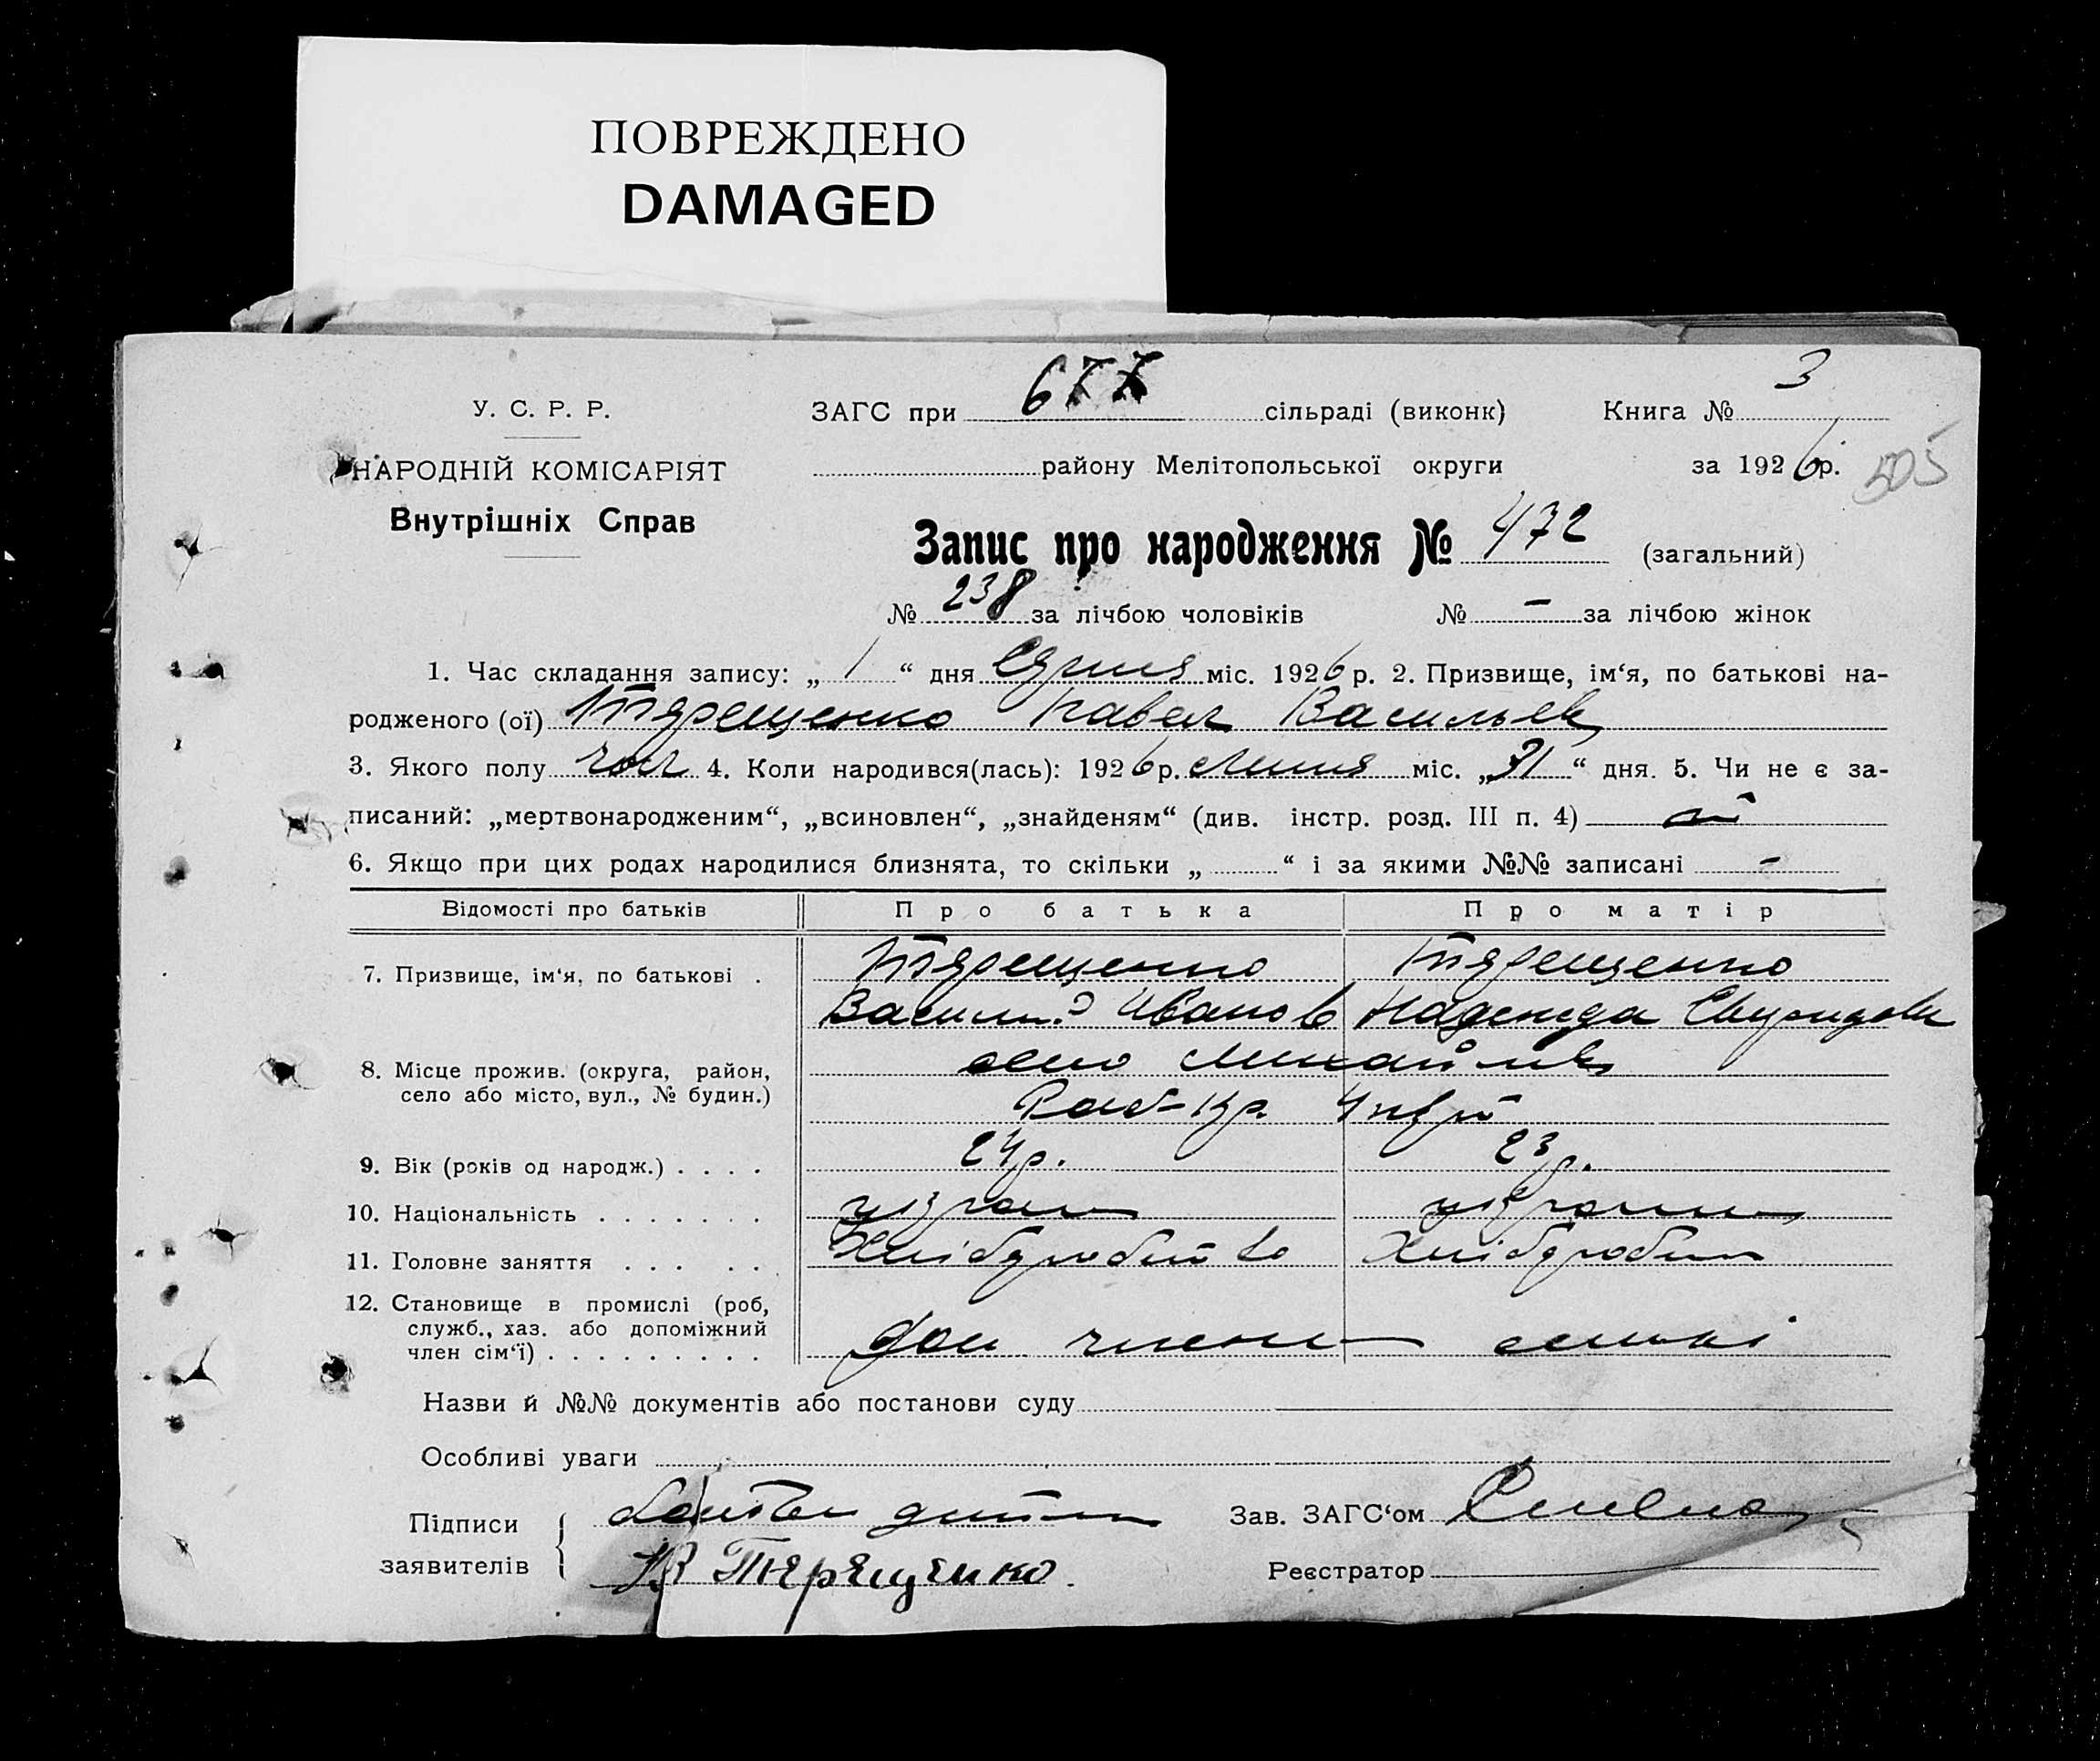 ПОВРЕЖДЕНО
DAMAGED
У. С. Р. Р.
ЗАГС при сільраді (виконк)
Книга № 3
НАРОДНІЙ КОМІСАРІЯТ
району Мелітопольської округи
за 1926 р. 505
Внутрішніх Справ
Запис про народження № 472 (загальний)
№ 238 за лічбою чоловіків № – за лічбою жінок
1. Час складання запису: „ 1 “ дня Серпня міс. 1926 р. 2. Призвище, ім‘я, по батькові на-
родженого (ої) Терещенко Павел Васильев
3. Якого полу чол 4. Коли народився(лась): 1926 р. Липня міс. „31“ дня. 5. Чи не є за-
писаний: „мертвонародженим“, „всиновлен“, „знайденям“ (див. інстр. розд. III п. 4)
6. Якщо при цих родах народилися близнята, то скільки „ “ і за якими №№ записані –
Відомості про батьків Про батька Про матір
7. Призвище, ім‘я, по батькові . Терещенко Терещенко
Василий Иванов Надежда
8. Місце прожив. (округа, район, село або місто, вул., № будин.) село Михайлівка
Раб-кр.
9. Вік (років од народж.) . . . . 24р. 23р.
10. Національність . . . . . . . україн україн
11. Головне заняття . . . . . Хліборобство Хлібороб
12. Становище в промислі (роб, служб., хаз. або допоміжний член сім‘ї) . . . . . . . . . Доп члени сімьі
Назви й №№ документів або постанови суду
Особливі уваги
Підписи заявителів
Зав. ЗАГС‘ом
Терещенко.
Реєстратор